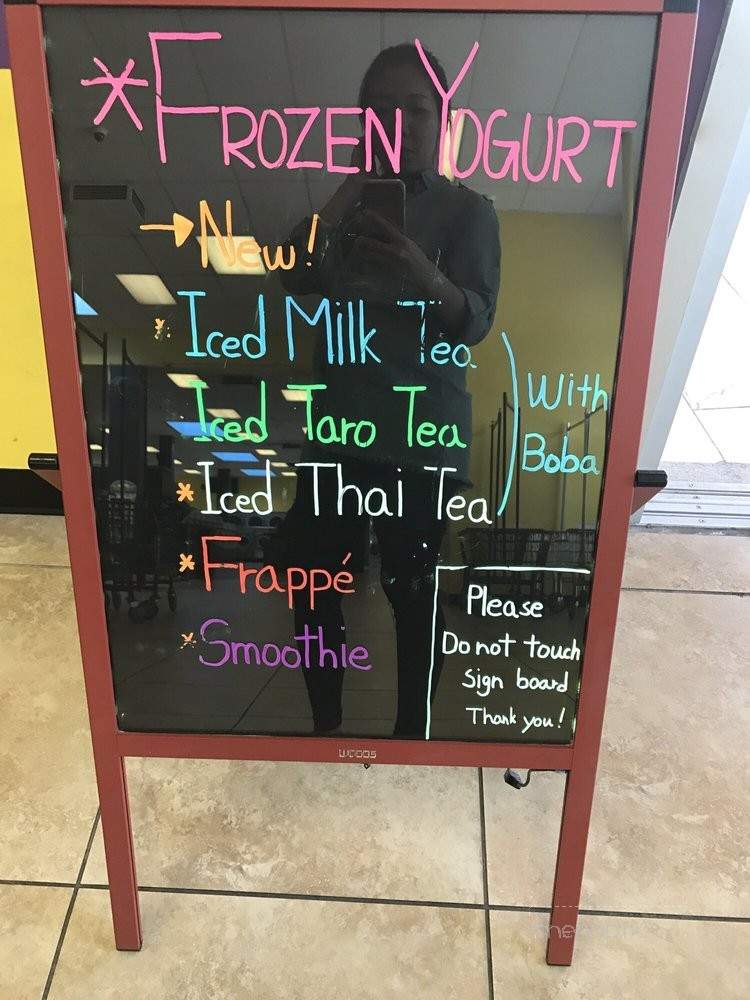 *FROZEN YOGURT
→New!
* Iced Milk Tea
Iced Taro Tea
* Iced Thai Tea
With
Boba
* Frappé
* Smoothie
Please
Do not touch
Sign board
Thank you!